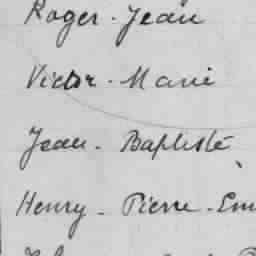 Roger - Jean
Victor - Marie
Jean - Baptiste
Henry - Pierre - Em